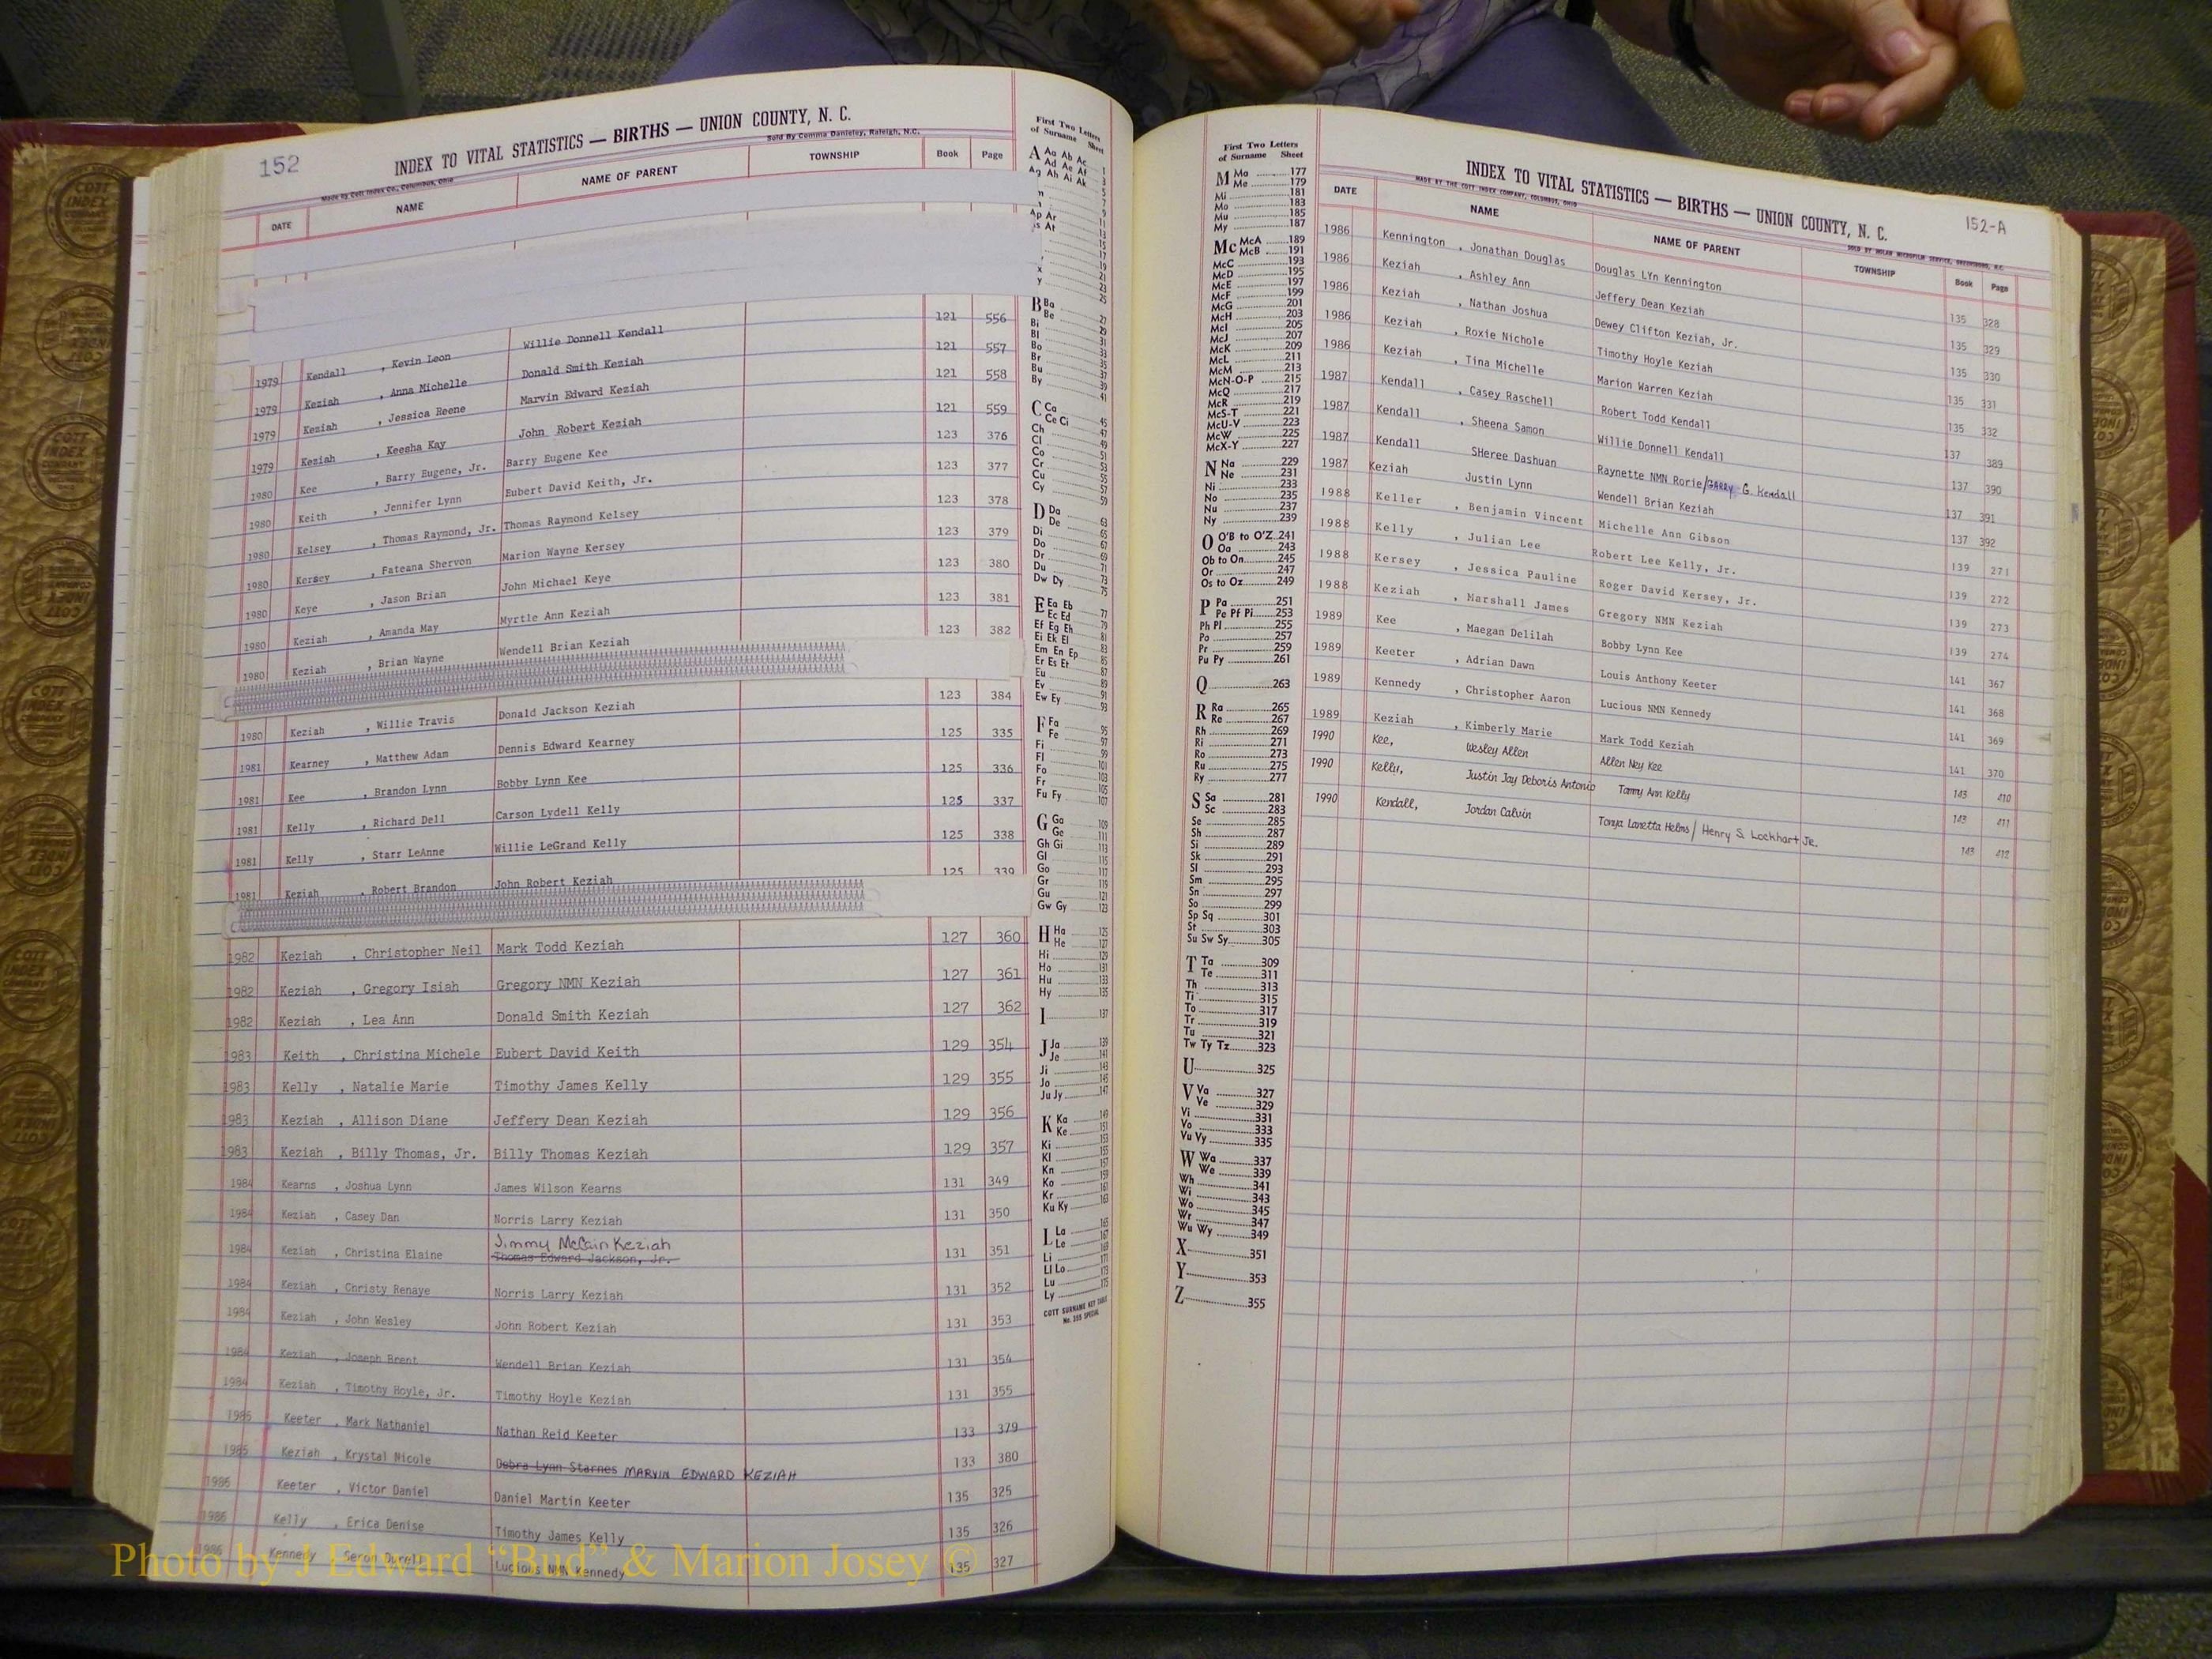 152
INDEX TO VITAL STATISTICS — BIRTHS — UNION COUNTY, N. C.
Made by Cott Index Co., Columbus, Ohio
Sold By Comma Danieley, Raleigh, N.C.
DATE NAME NAME OF PARENT TOWNSHIP Book Page
1979 Kendall , Kevin Leon Willie Donnell Kendall 121 556
1979 Keziah , Anna Michelle Donald Smith Keziah 121 557
1979 Keziah , Jessica Reene Marvin Edward Keziah 121 558
1979 Keziah , Keesha Kay John Robert Keziah 121 559
1980 Kee , Barry Eugene, Jr. Barry Eugene Kee 123 376
1980 Keith , Jennifer Lynn Eubert David Keith, Jr. 123 377
1980 Kelsey , Thomas Raymond, Jr. Thomas Raymond Kelsey 123 378
1980 Kersey , Fateana Shervon Marion Wayne Kersey 123 379
1980 Keye , Jason Brian John Michael Keye 123 380
1980 Keziah , Amanda May Myrtle Ann Keziah 123 381
1980 Keziah , Brian Wayne Wendell Brian Keziah 123 382
1980 Keziah , Willie Travis Donald Jackson Keziah 123 384
1981 Kearney , Matthew Adam Dennis Edward Kearney 125 335
1981 Kee , Brandon Lynn Bobby Lynn Kee 125 336
1981 Kelly , Richard Dell Carson Lydell Kelly 125 337
1981 Kelly , Starr LeAnne Willie LeGrand Kelly 125 338
1981 Keziah , Robert Brandon John Robert Keziah 125 339
1982 Keziah , Christopher Neil Mark Todd Keziah 127 360
1982 Keziah , Gregory Isiah Gregory NMN Keziah 127 361
1982 Keziah , Lea Ann Donald Smith Keziah 127 362
1983 Keith , Christina Michele Eubert David Keith 129 354
1983 Kelly , Natalie Marie Timothy James Kelly 129 355
1983 Keziah , Allison Diane Jeffery Dean Keziah 129 356
1983 Keziah , Billy Thomas, Jr. Billy Thomas Keziah 129 357
1984 Kearns , Joshua Lynn James Wilson Kearns 131 349
1984 Keziah , Casey Dan Norris Larry Keziah 131 350
Jimmy McCain Keziah
1984 Keziah , Christina Elaine Thomas Edward Jackson, Jr. 131 351
1984 Keziah , Christy Renaye Norris Larry Keziah 131 352
1984 Keziah , John Wesley John Robert Keziah 131 353
1984 Keziah , Joseph Brent Wendell Brian Keziah 131 354
1984 Keziah , Timothy Hoyle, Jr. Timothy Hoyle Keziah 131 355
1985 Keeter , Mark Nathaniel Nathan Reid Keeter 133 379
1985 Keziah , Krystal Nicole Debra Lynn Starnes MARVIN EDWARD KEZIAH 133 380
1986 Keeter , Victor Daniel Daniel Martin Keeter 135 325
1986 Kelly , Erica Denise Timothy James Kelly 135 326
1986 Kennedy , Seron Durell Lucious NMN Kennedy 135 327
First Two Letters
of Surname Sheet
A Aa Ab Ac 1
Ad Ae Af 3
Ag Ah Ai Ak 5
Ap Ar
As At
B Ba 27
Be 29
Bi 31
Bl 33
Bo 35
Br 37
Bu 39
By 41
C Ca 45
Ce Ci 47
Ch 49
Cl 51
Co 53
Cr 55
Cu 57
Cy 59
D Da 63
De 65
Di 67
Do 69
Dr 71
Du 73
Dw Dy 75
E Ea Eb 77
Ec Ed 79
Ef Eg Eh 81
Ei Ek El 83
Em En Ep 85
Er Es Et 87
Eu 89
Ev 91
Ew Ey 93
F Fa 95
Fe 97
Fi 99
Fl 101
Fo 103
Fr 105
Fu Fy 107
G Ga 109
Ge 111
Gh Gi 113
Gl 115
Go 117
Gr 119
Gu 121
Gw Gy 123
H Ha 125
He 127
Hi 129
Ho 131
Hu 133
Hy 135
I 137
J Ja 139
Je 141
Ji 143
Jo 145
Ju Jy 147
K Ka 149
Ke 151
Ki 153
Kl 155
Kn 157
Ko 159
Kr 161
Ku Ky 163
L La 165
Le 167
Li 169
Ll Lo 171
Lu 173
Ly 175
COTT SURNAME KEY TABLE
No. 355 SPECIAL
First Two Letters
of Surname Sheet
M Ma 177
Me 179
Mi 181
Mo 183
Mu 185
My 187
Mc McA 189
McB 191
McC 193
McD 195
McE 197
McF 199
McG 201
McH 203
McI 205
McJ 207
McK 209
McL 211
McM 213
McN-O-P 215
McQ 217
McR 219
McS-T 221
McU-V 223
McW 225
McX-Y 227
N Na 229
Ne 231
Ni 233
No 235
Nu 237
Ny 239
O O'B to O'Z 241
Oa 243
Ob to On 245
Or 247
Os to Oz 249
P Pa 251
Pe Pf Pi 253
Ph Pl 255
Po 257
Pr 259
Pu Py 261
Q 263
R Ra 265
Re 267
Rh 269
Ri 271
Ro 273
Ru 275
Ry 277
S Sa 281
Sc 283
Se 285
Sh 287
Si 289
Sk 291
Sl 293
Sm 295
Sn 297
So 299
Sp Sq 301
St 303
Su Sw Sy 305
T Ta 309
Te 311
Th 313
Ti 315
To 317
Tr 319
Tu 321
Tw Ty Tz 323
U 325
V Va 327
Ve 329
Vi 331
Vo 333
Vu Vy 335
W Wa 337
We 339
Wh 341
Wi 343
Wo 345
Wr 347
Wu Wy 349
X 351
Y 353
Z 355
152-A
INDEX TO VITAL STATISTICS — BIRTHS — UNION COUNTY, N. C.
MADE BY THE COTT INDEX COMPANY, COLUMBUS, OHIO
SOLD BY MICROFILM SERVICE, GREENSBORO, N.C.
DATE NAME NAME OF PARENT TOWNSHIP Book Page
1986 Kennington , Jonathan Douglas Douglas LYn Kennington 135 328
1986 Keziah , Ashley Ann Jeffery Dean Keziah 135 329
1986 Keziah , Nathan Joshua Dewey Clifton Keziah, Jr. 135 330
1986 Keziah , Roxie Nichole Timothy Hoyle Keziah 135 331
1986 Keziah , Tina Michelle Marion Warren Keziah 135 332
1987 Kendall , Casey Raschell Robert Todd Kendall 137 389
1987 Kendall , Sheena Samon Willie Donnell Kendall 137 390
1987 Kendall SHeree Dashuan Raynette NMN Rorie/GARRY G. Kendall 137 391
1987 Keziah Justin Lynn Wendell Brian Keziah 137 392
1988 Keller , Benjamin Vincent Michelle Ann Gibson 139 271
1988 Kelly , Julian Lee Robert Lee Kelly, Jr. 139 272
1988 Kersey , Jessica Pauline Roger David Kersey, Jr. 139 273
1988 Keziah , Marshall James Gregory NMN Keziah 139 274
1989 Kee , Maegan Delilah Bobby Lynn Kee 141 367
1989 Keeter , Adrian Dawn Louis Anthony Keeter 141 368
1989 Kennedy , Christopher Aaron Lucious NMN Kennedy 141 369
1989 Keziah , Kimberly Marie Mark Todd Keziah 141 370
1990 Kee, Wesley Allen Allen Ney Kee 143 410
1990 Kelly, Justin Jay Deboris Antonio Tammy Ann Kelly 143 411
1990 Kendall, Jordan Calvin Tonya Lanetta Helms / Henry S. Lockhart Jr. 143 412
Photo by J Edward “Bud” & Marion Josey ©